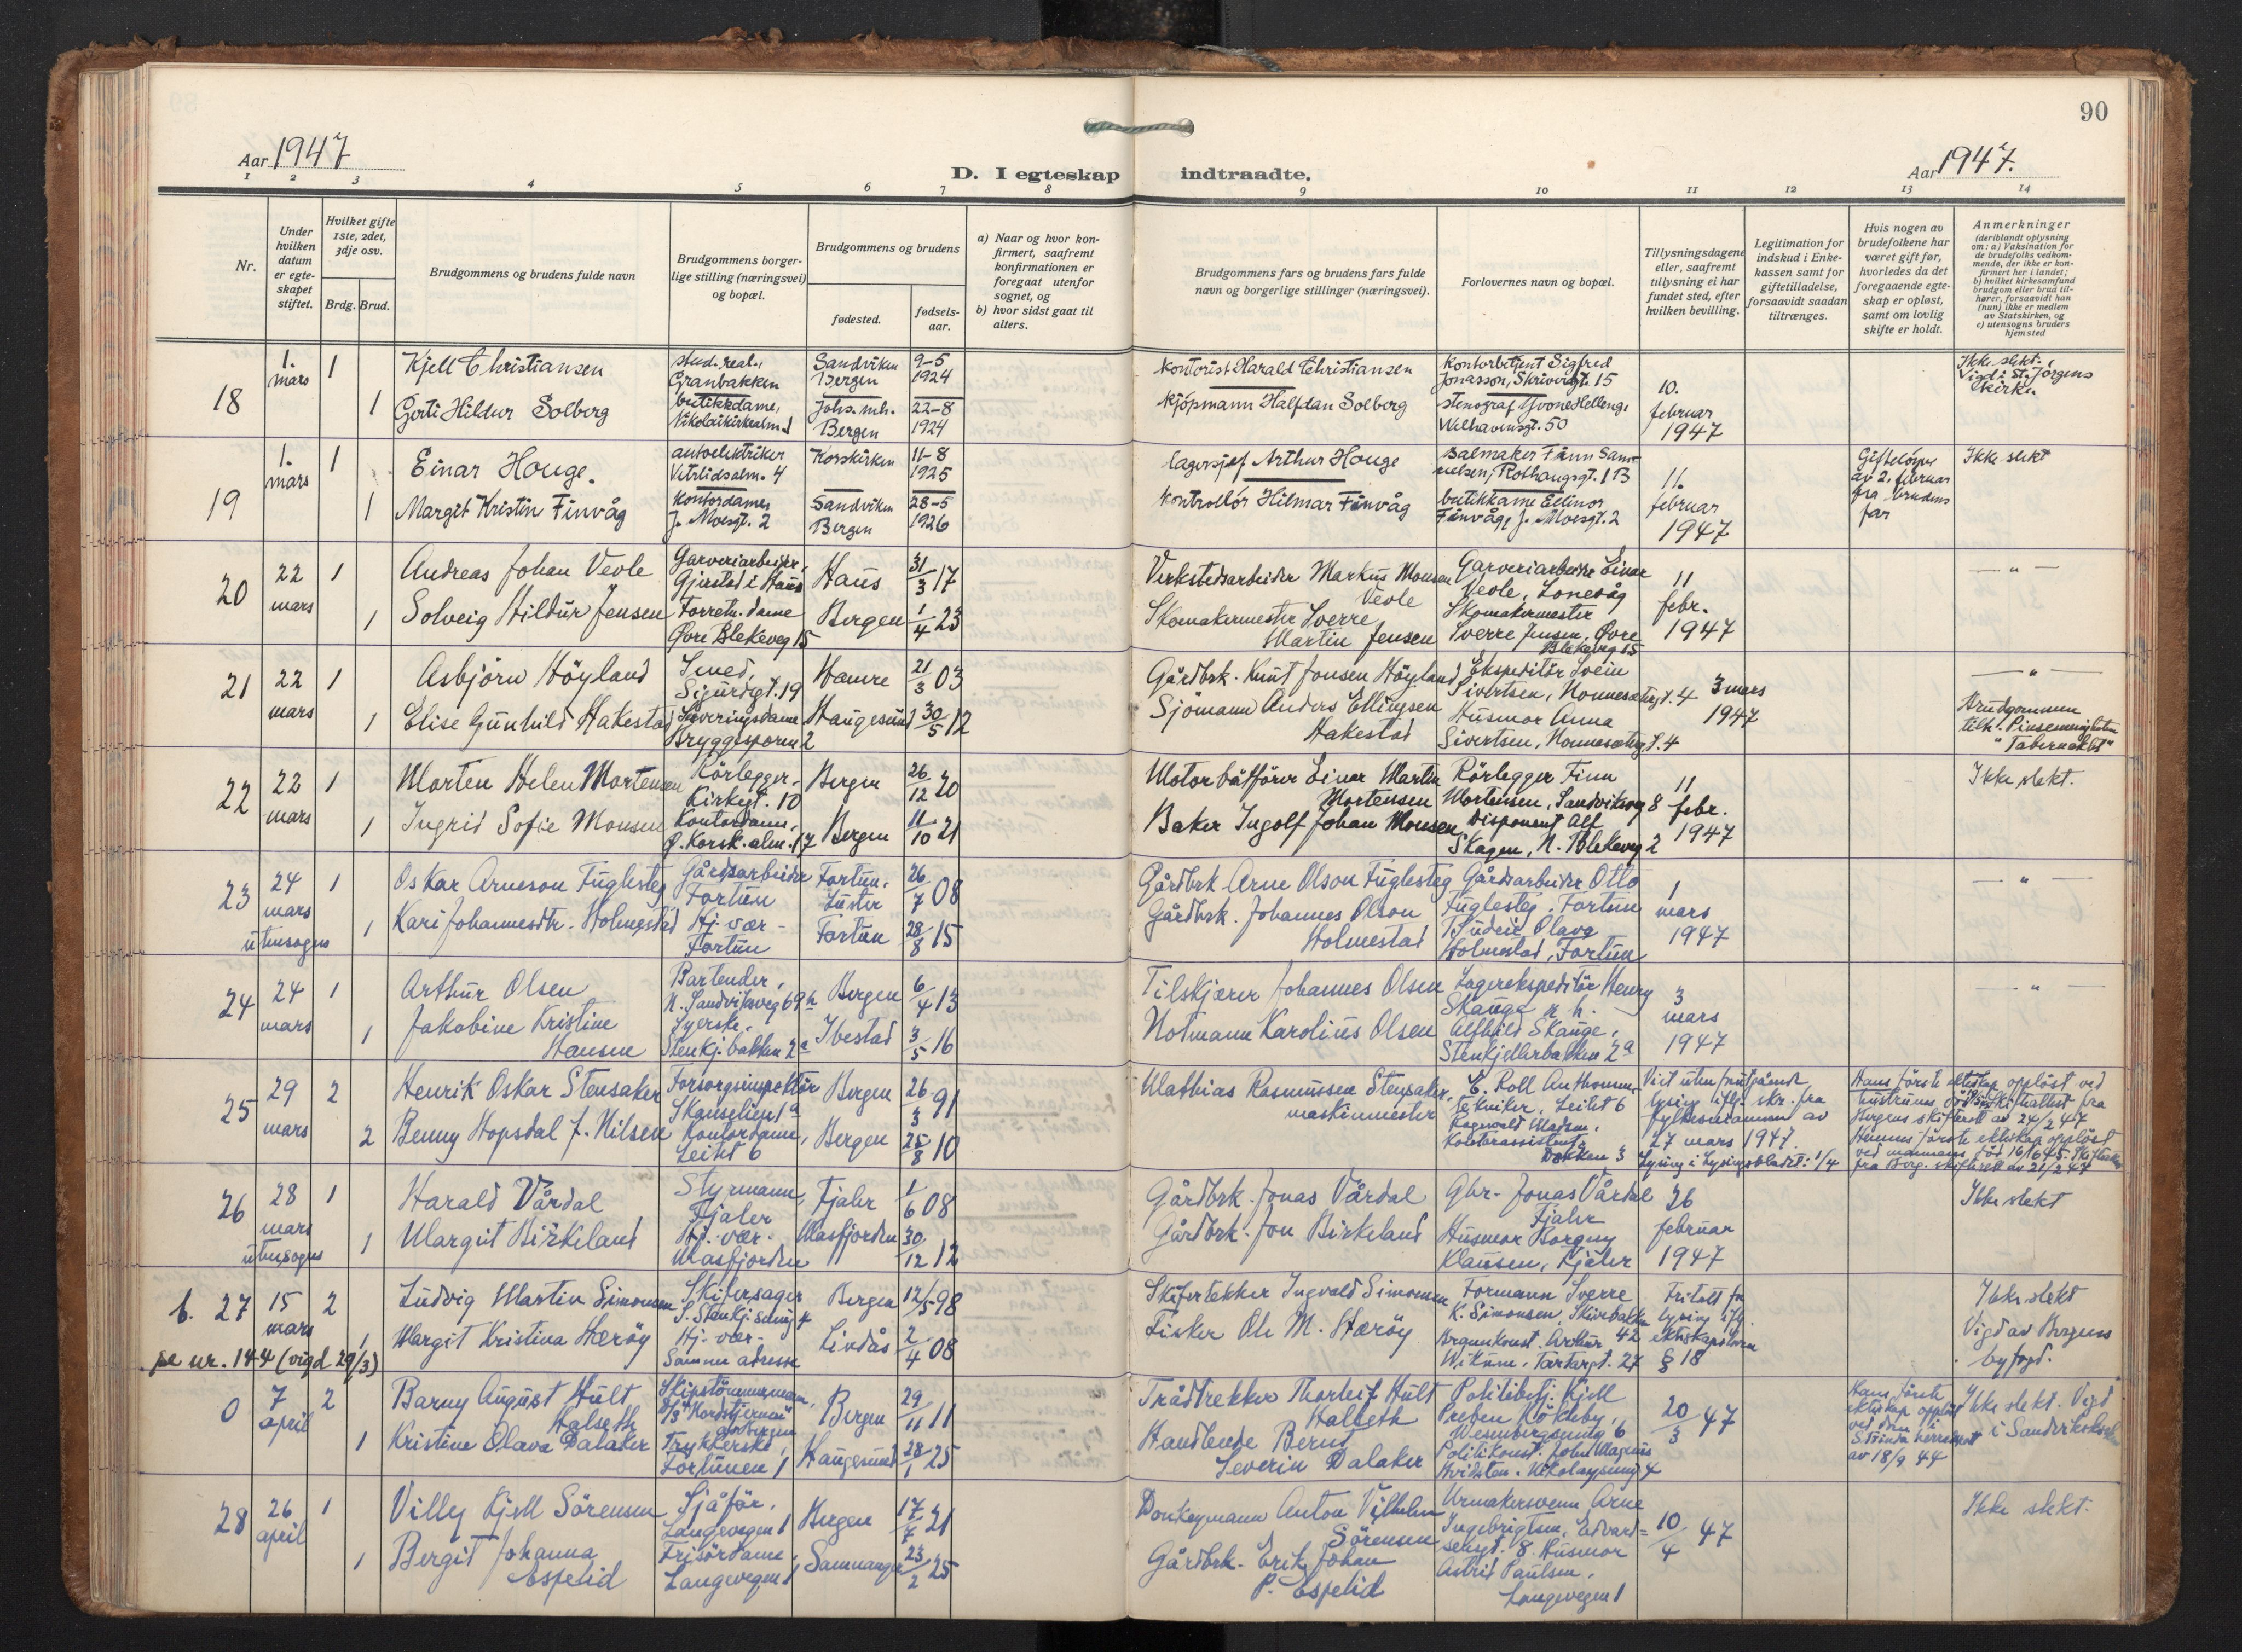 90
Aar 1947
D. I egteskap indtraadte.
Aar 1947.
1 2 3 4 5 6 7 8 9 10 11 12 13 14
Nr.
Under hvilken datum er egteskapet stiftet.
Hvilket gifte 1ste, 2det, 3dje osv.
Brdg. Brud.
Brudgommens og brudens fulde navn
Brudgommens borgerlige stilling (næringsvei) og bopæl.
Brudgommens og brudens
fødested.
fødselsaar.
a) Naar og hvor konfirmert, saafremt konfirmationen er foregaat utenfor sognet, og
b) hvor sidst gaat til alters.
Brudgommens fars og brudens fars fulde navn og borgerlige stillinger (næringsvei).
Forlovernes navn og bopæl.
Tillysningsdagene eller, saafremt tillysning ei har fundet sted, efter hvilken bevilling.
Legitimation for indskud i Enkekassen samt for giftetilladelse, forsaavidt saadan tiltrænges.
Hvis nogen av brudefolkene har været gift før, hvorledes da det foregaaende egteskap er opløst, samt om lovlig skifte er holdt.
Anmerkninger (deriblandt oplysning om: a) Vaksination for de brudefolks vedkommende, der ikke er konfirmert her i landet; b) hvilket kirkesamfund brudgom eller brud tilhører, forsaavidt han (hun) ikke er medlem av Statskirken, og c) utensogns bruders hjemsted
18 1. mars 1 Kjell Christiansen stud. real., Granbakken Sandviken Bergen 9-5 1924 Kontorist Harald Christiansen Kontorbetjent Sigfred Jonasson, Skrivergt. 15 10. februar 1947 Ikke slekt. Vigd i St. Jørgens kirke.
1 Gerti Hildur Solberg butikkdame, Nikolaikirkealm. Johs. mh. Bergen 22-8 1924 Kjøpmann Halfdan Solberg stenograf Yvone Helleng, Welhavensgt. 50
19 1. mars 1 Einar Houge. autoelektriker Vetrlidsalm. 4 Korskirken 11-8 1925 lagersjef Arthur Houge Salmaker Finn Samuelsen, Rothaugsgt. 1B 11. februar 1947 Giftelöyver av 2. februar fra brudens far Ikke slekt
1 Margit Kristin Finvåg kontordame, J. Moesgt. 2 Sandviken Bergen 28-5 1926 kontrollör Hilmar Finvåg butikkdame Ellinor Finvåg, J. Moesgt. 2
20 22 mars 1 Andreas Johan Veole Garveriarbeider, Gjerstad i Haus Haus 31/3 17 Verkstedsarbeider Markus Monsen Veole Garveriarbeider Einar Veole, Lonevåg 11 febr. 1947 — " —
1 Solveig Hildur Jensen Forretn. dame Øvre Blekeveg 15 Bergen 1/4 23 Skomakermester Sverre Martin Jensen Skomakermester Sverre Jensen, Øvre Blekeveg 15
21 22 mars 1 Asbjörn Höyland Smed, Sigurdsgt. 19 Hamre 21/3 03 Gårdbrk. Knut Jonsen Höyland Ekspeditör Svein Sivertsen, Nonnesetergt. 4 3 mars 1947 — " —
1 Elise Gunhild Hakestad Serveringsdame Bryggesporen 2 Haugesund 30/5 12 Sjömann Anders Ellingsen Hakestad Husmor Anna Sivertsen, Nonnesetergt. 4 Brudgommen tilh. Pinsemenigheten "Tabernaklet"
22 22 mars 1 Morten Helen Mortensen Rörlegger - Kirkegt. 10 Bergen 26/12 20 Motorbåtförer Einar Martin Mortensen Rörlegger Finn Mortensen, Sandviksveg 8 11 febr. 1947 Ikke slekt.
1 Ingrid Sofie Monsen Kontordame, Ø. Korsk. alm. 17 Bergen 11/10 21 Baker Ingolf Johan Monsen Disponent Alf Skagen, N. Blekeveg 2
23 24 mars utensogns 1 Oskar Arneson Fuglesteg Gårdsarbeider Fortun Fortun, Luster 26/7 08 Gårdbrk Arne Olson Fuglesteg Gårdsarbeider Otto Fuglesteg, Fortun 1 mars 1947 — " —
1 Kari Johannesdtr. Holmestad Hj. vær - Fortun Fortun 28/8 15 Gårdbrk. Johannes Olson Holmestad Olava Holmestad, Fortun
24 24 mars 1 Arthur Olsen Bartender, N. Sandviksveg 69 Bergen 6/4 13 Tilskjærer Johannes Olsen Lagerekspeditör Henry Skauge 3 mars 1947 — " —
1 Jakobine Kristine Hansen Syerske, Stenkj. bakken 2a Ibestad 3/5 16 Notmann Karolius Olsen Alfhild Skauge, Stenkjellerbakken 2a
25 29 mars 2 Henrik Oskar Stensaker Forsorgsinspektör Skanselien 1a Bergen 26/3 91 Mathias Rasmussen Stensaker, maskinmester C. Roll Anthonn, tekniker, Leitet 6 Viet uten forutgående lysing ifl. skr. fra fylkesmannen av 27 mars 1947. Lysing i Lysingsbladet: 1/4
2 Benny Hopsdal f. Nilsen Kontordame, Leitet 6 Bergen 25/8 10 Ragnvald Madsen, Kontorassistent, Dokken 3 Hans förste ekteskap opplöst ved hustruens död. Skifteattest fra Bergens skifterett av 24/2 47 Hennes förste ekteskap opplöst ved mannens död 16/6 45. Skifteattest fra Berg. skifterett av 21/2 47
26 28 mars utensogns 1 Harald Vårdal Styrmann, Fjaler Fjaler 1/6 08 Gårdbrk. Jonas Vårdal Gbr. Jonas Vårdal Fjaler 26 februar 1947 Ikke slekt
1 Margit Birkeland Hj. vær - Masfjorden Masfjorden 30/12 12 Gårdbrk. Jon Birkeland Husmor Borgny Klausen, Fjaler
b. 27 15 mars 2 Ludvig Martin Simonsen Skifersager S. Stenkj. smug 4 Bergen 12/5 98 Skifertekker Ingvald Simonsen Formann Sverre K. Simonsen, Skivebakken 42 Fritatt for lysing ifl. ekteskapsloven § 18 Ikke slekt Vigd av Bergens byfogd.
1 Margit Kristina Hærøy Hj. vær - Samme adresse Lindås 2/4 08 Fisker Ole M. Hærøy Brannkonst. Arthur Wikum, Tartargt. 27
se nr. 144 (vigd 29/3)
0 7 april 2 Barny August Hult Halseth Skipstömmermann, D/S "Nordstjernen" av Bergen Bergen 29/11 11 Trådtrekker Thorleif Hult Halseth Politibetj. Kjell Preben Kökleby, Wesenbergsmug 6 20/3 47 Hans förste ekteskap opplöst ved dom i Strinda herredsrett av 18/9 44 Ikke slekt. Vigd i Sandvikskirken
1 Kristine Olava Dalaker Trykkerske, Fortunen 1 Haugesund 28/1 25 Handlende Bernt Severin Dalaker Politikonst. John Magnus Hvidsten, Nikolaysmug 4
28 26 april 1 Villy Kjell Sörensen Sjåför, Langevegen 1 Bergen 17/7 21 Donkeymann Anton Vilhelm Sörensen Urmakersvenn Arne Ingebrigtsen, Edvardsensgt. 8. 10/4 47 Ikke slekt.
1 Bergit Johanna Espelid Frisördame, Langevegen 1 Samnanger 23/2 25 Gårdbrk. Erik Johan P. Espelid Husmor Astrid Paulsen, Langevegen 1